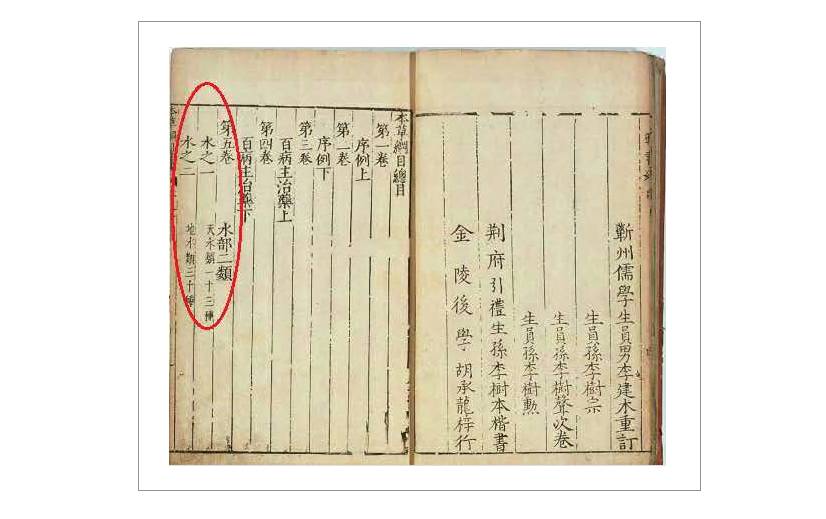 蘄州儒學生員男李建木重訂
生員孫李樹宗
生員孫李樹聲次卷
生員孫李樹勳
荆府引禮生孫李樹本楷書
金陵後學胡承龍梓行
本草綱目總目
第一卷
序例上
第一卷
序例下
第三卷
百病主治藥上
第四卷
百病主治藥下
第五卷 水部二類
水之一 天水類一十三種
水之二 地水類三十種